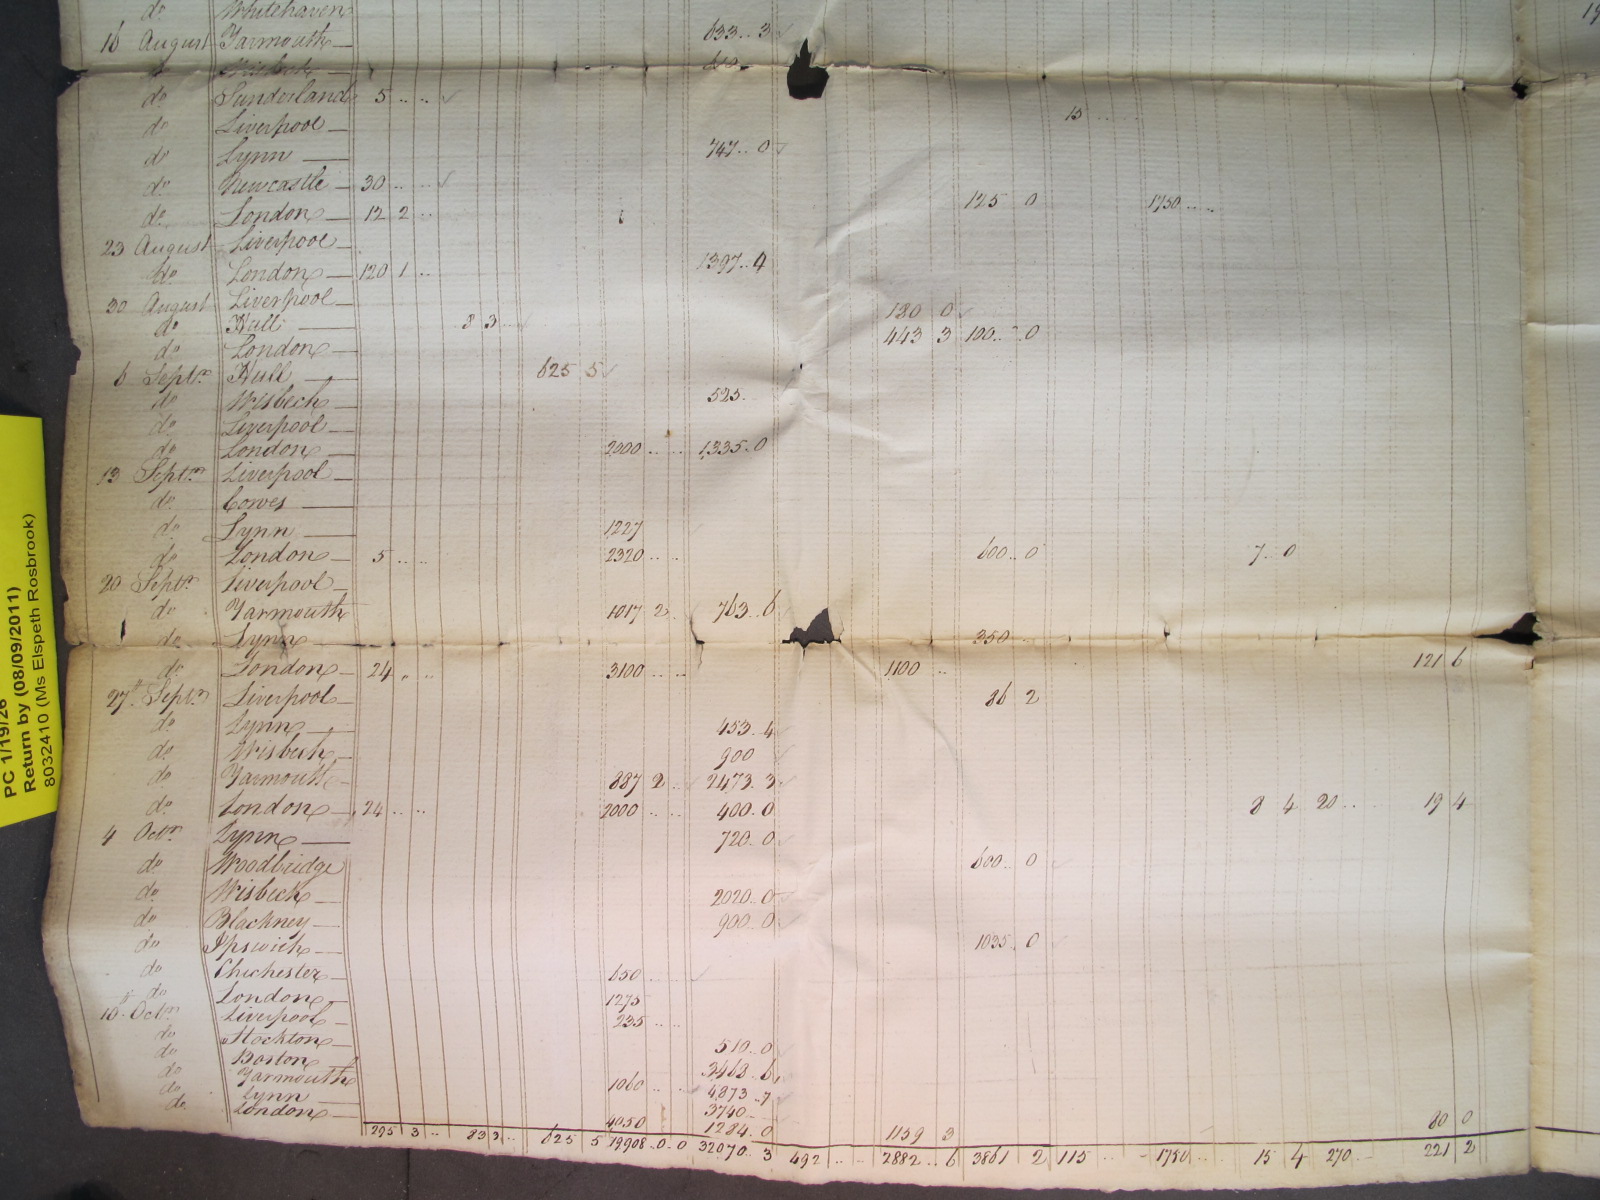 do Whitehaven
16 August Yarmouth 633 .. 3
do Wisbech 610
do Sunderland 5 .. ..
do Liverpool 15 .. ..
do Lynn 747 .. 0
do Newcastle 30 .. ..
do London 12 2 .. 125 0 1750 .. ..
23 August Liverpool
do London 120 1 .. 1397 .. 4
30 August Liverpool 180 0
do Hull 8 3 .. 443 3 100 .. 0
do London
6 Septr Hull 625 5
do Wisbech 525
do Liverpool
do London 2000 .. .. 1335 .. 0
13 Septr Liverpool
do Cowes
do Lynn 1227
do London 5 .. .. 2320 .. .. 600 .. 0 7 .. 0
20 Septr Liverpool
do Yarmouth 1017 2 763 .. 6
do Lynn 350
do London 24 .. .. 3100 .. .. 1100 .. 121 6
27th Septr Liverpool 86 2
do Lynn 453 .. 4
do Wisbech 900
do Yarmouth 887 2 2473 .. 3
do London 24 .. .. 2000 .. .. 400 .. 0 8 4 20 .. 19 4
4 Octr Lynn 720 .. 0
do Woodbridge 600 .. 0
do Wisbech 2020 .. 0
do Blackney 900 .. 0
do Ipswich 1035 .. 0
do Chichester 650
do London 1275
10th Octr Liverpool 235 .. ..
do Stockton 510 .. 0
do Boston 3468 .. 6
do Yarmouth 1060 .. .. 4873 .. 7
do Lynn 3740
do London 4050 1284 .. 0 1159 3 80 0
295 3 .. 83 3 .. 625 5 19908 .. 0 .. 0 32070 .. 3 492 .. .. 2882 .. 6 3861 2 115 .. 1750 .. .. 15 4 270 221 2
PC 1/19/26
Return by (08/09/2011)
8032410 (Ms Elspeth Rosbrook)